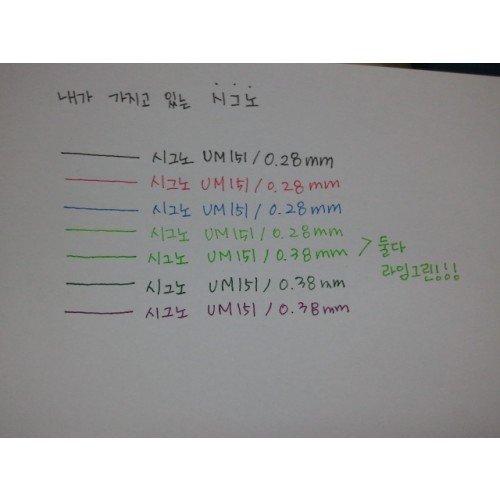 내가 가지고 있는 시그노
시그노 UM151/0.28mm
시그노 UM151/0.28mm
시그노 UM151/0.28mm
시그노 UM151/0.28mm
시그노 UM151/0.38mm > 둘다
라임그린!!!
시그노 UM151/0.38mm
시그노 UM151/0.38mm